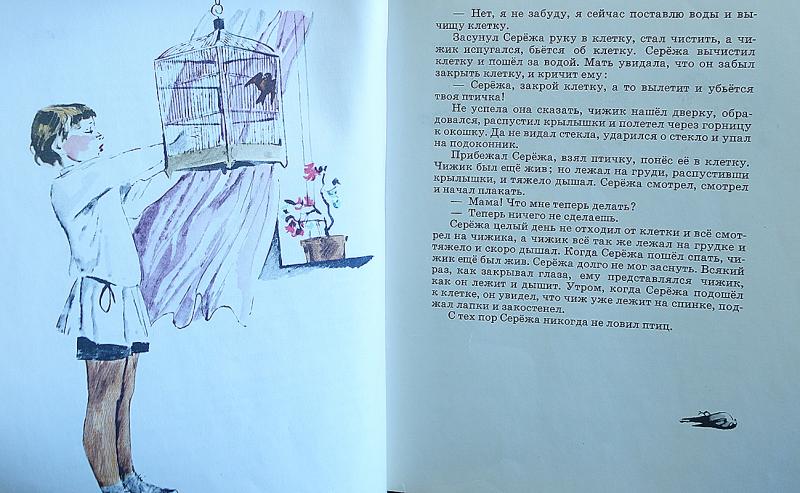 — Нет, я не забуду, я сейчас поставлю воды и вы-
чищу клетку.
Засунул Серёжа руку в клетку, стал чистить, а чи-
жик испугался, бьётся об клетку. Серёжа вычистил
клетку и пошёл за водой. Мать увидала, что он забыл
закрыть клетку, и кричит ему:
— Серёжа, закрой клетку, а то вылетит и убьётся
твоя птичка!
Не успела она сказать, чижик нашёл дверку, обра-
довался, распустил крылышки и полетел через горницу
к окошку. Да не видал стекла, ударился о стекло и упал
на подоконник.
Прибежал Серёжа, взял птичку, понёс её в клетку.
Чижик был ещё жив; но лежал на груди, распустивши
крылышки, и тяжело дышал. Серёжа смотрел, смотрел
и начал плакать.
— Мама! Что мне теперь делать?
— Теперь ничего не сделаешь.
Серёжа целый день не отходил от клетки и всё смот-
рел на чижика, а чижик всё так же лежал на грудке и
тяжело и скоро дышал. Когда Серёжа пошёл спать, чи-
жик ещё был жив. Серёжа долго не мог заснуть. Всякий
раз, как закрывал глаза, ему представлялся чижик,
как он лежит и дышит. Утром, когда Серёжа подошёл
к клетке, он увидел, что чиж уже лежит на спинке, под-
жал лапки и закостенел.
С тех пор Серёжа никогда не ловил птиц.